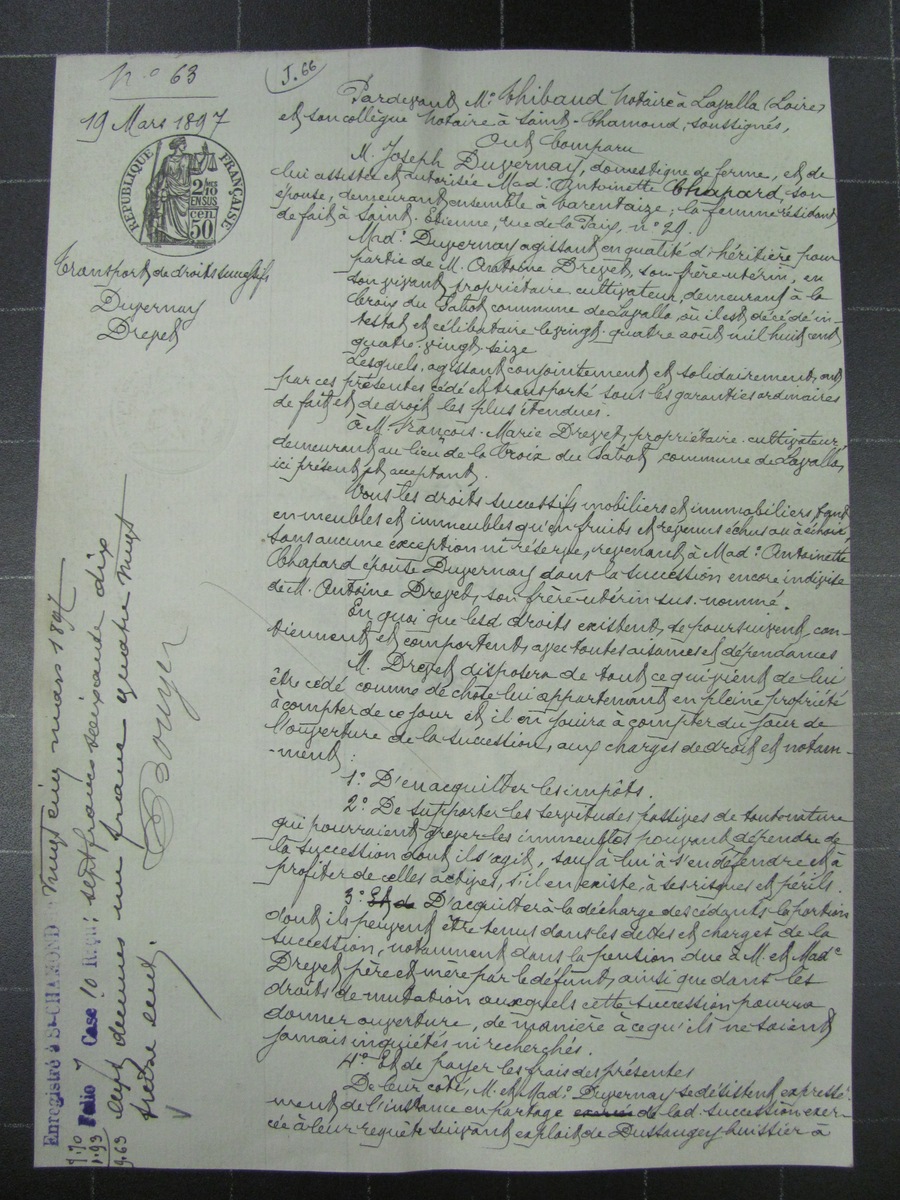 N.o 63
J. 66
19 Mars 1897
RÉPUBLIQUE FRANÇAISE
2/10es
EN SUS
50 cen.
Transport de droits successifs
Duvernay
Drevet
Pardevant Me Thibaud notaire à Lavalla (Loire)
et son collègue notaire à Saint-Chamond, soussignés,
Ont Comparu
M. Joseph Duvernay, domestique de ferme, et de
lui assistée et autorisée Made Antoinette Chapard, son
épouse, demeurant ensemble à Tarentaize ; la femme résidant
de fait à Saint-Etienne, rue de la Paix, n° 29.
Made Duvernay agissant en qualité d'héritière pour
partie de M. Antoine Drevet, son frère utérin, en
son vivant propriétaire cultivateur, demeurant à la
Croix du Sabot commune de Lavalla, où il est décédé in-
testat et célibataire le vingt-quatre août mil huit cent
quatre-vingt-seize
Lesquels, agissant conjointement et solidairement, ont
par ces présentes cédé et transporté sous les garanties ordinaires
de fait et de droit les plus étendues.
à M. François-Marie Drevet, propriétaire-cultivateur,
demeurant au lieu de la Croix du Sabot, commune de Lavalla,
ici présent et acceptant.
Tous les droits successifs mobiliers et immobiliers, tant
en meubles et immeubles qu'en fruits et revenus échus ou à échoir,
sans aucune exception ni réserve, revenant à Made Antoinette
Chapard épouse Duvernay dans la succession encore indivise
de M. Antoine Drevet, son frère utérin sus-nommé.
En quoi que lesd. droits existent, se poursuivent, con-
tiennent et comportent, avec toutes aisances et dépendances
M. Drevet disposera de tout ce qui vient de lui
être cédé comme de chose lui appartenant en pleine propriété
à compter de ce jour et il en jouira à compter du jour de
l'ouverture de la succession, aux charges de droit et notam-
-ment :
1° D'en acquitter les impôts.
2° De supporter les servitudes passives de toute nature
qui pourraient grever les immeubles pouvant dépendre de
la succession dont il s'agit, sauf à lui à s'en défendre et à
profiter de celles actives, s'il en existe, à ses risques et périls.
3° Et de D'acquitter à la décharge des cédants la portion
dont ils peuvent être tenus dans les dettes et charges de la
succession, notamment dans la pension due à M. et Made
Drevet père et mère par le défunt, ainsi que dans les
droits de mutation auxquels cette succession pourra
donner ouverture, de manière à ce qu'ils ne soient
jamais inquiétés ni recherchés.
4° Et de payer les frais des présentes
De leur côté, M. et Made Duvernay se désistent expressé-
ment de l'instance en partage de lad. succession exer-
cée à leur requête suivant exploit de Dussaugey huissier à
Enregistré à St-CHAMOND vingt cinq mars 1897
Folio 7 Case 10 Reçu : sept francs soixante dix
centimes un franc quatre vingt
treize cent.
Bouyer
7.70
1.93
9.63